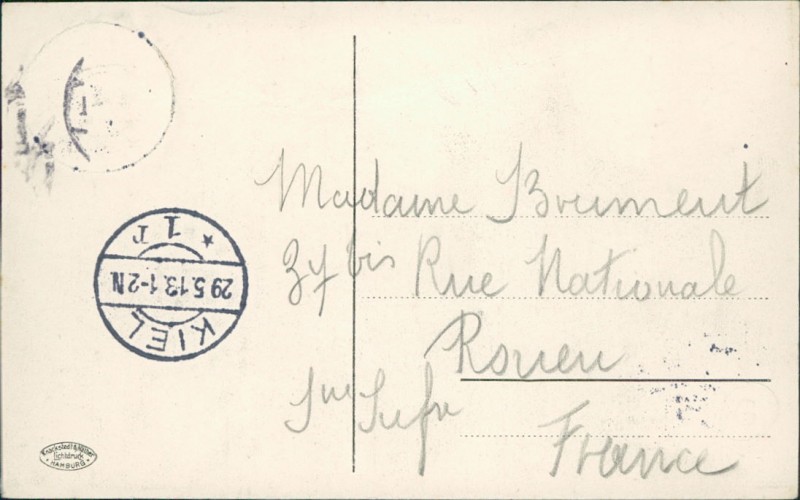 Madame Brument
37 bis Rue Nationale
Rouen
Sne Infre
France
KIEL
29.5.13.1-2N
* 1 r
Knackstedt & Näther
Lichtdruck
HAMBURG